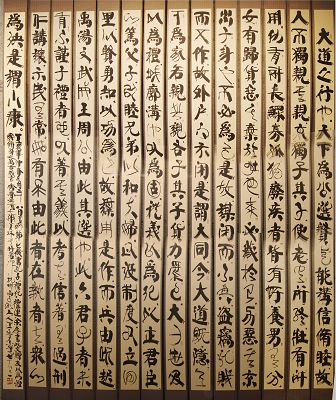 大道之行也天下為公選賢與能講信脩睦故
人不獨親其親不獨子其子使老有所終壯有所
用幼有所長矜寡孤獨廢疾者皆有所養男有分
女有歸貨惡其棄於地也不必藏於己力惡其不
出于身也不必為己是故謀閉而不興盜竊亂賊
而不作故外戶而不閉是謂大同今大道既隱天
下為家各親其親各子其子貨力為己大人世及
以為禮城郭溝池以為固禮義以為紀以正君臣
以篤父子以睦兄弟以和夫婦以設制度以立田
里以賢勇知以功為己故謀用是作而兵由此起
禹湯文武成王周公由此其選也此六君子者未
有不謹于禮者也以著其義以考其信著有過刑
仁講讓示民有常如有不由此者在埶者去眾以
為殃是謂小康